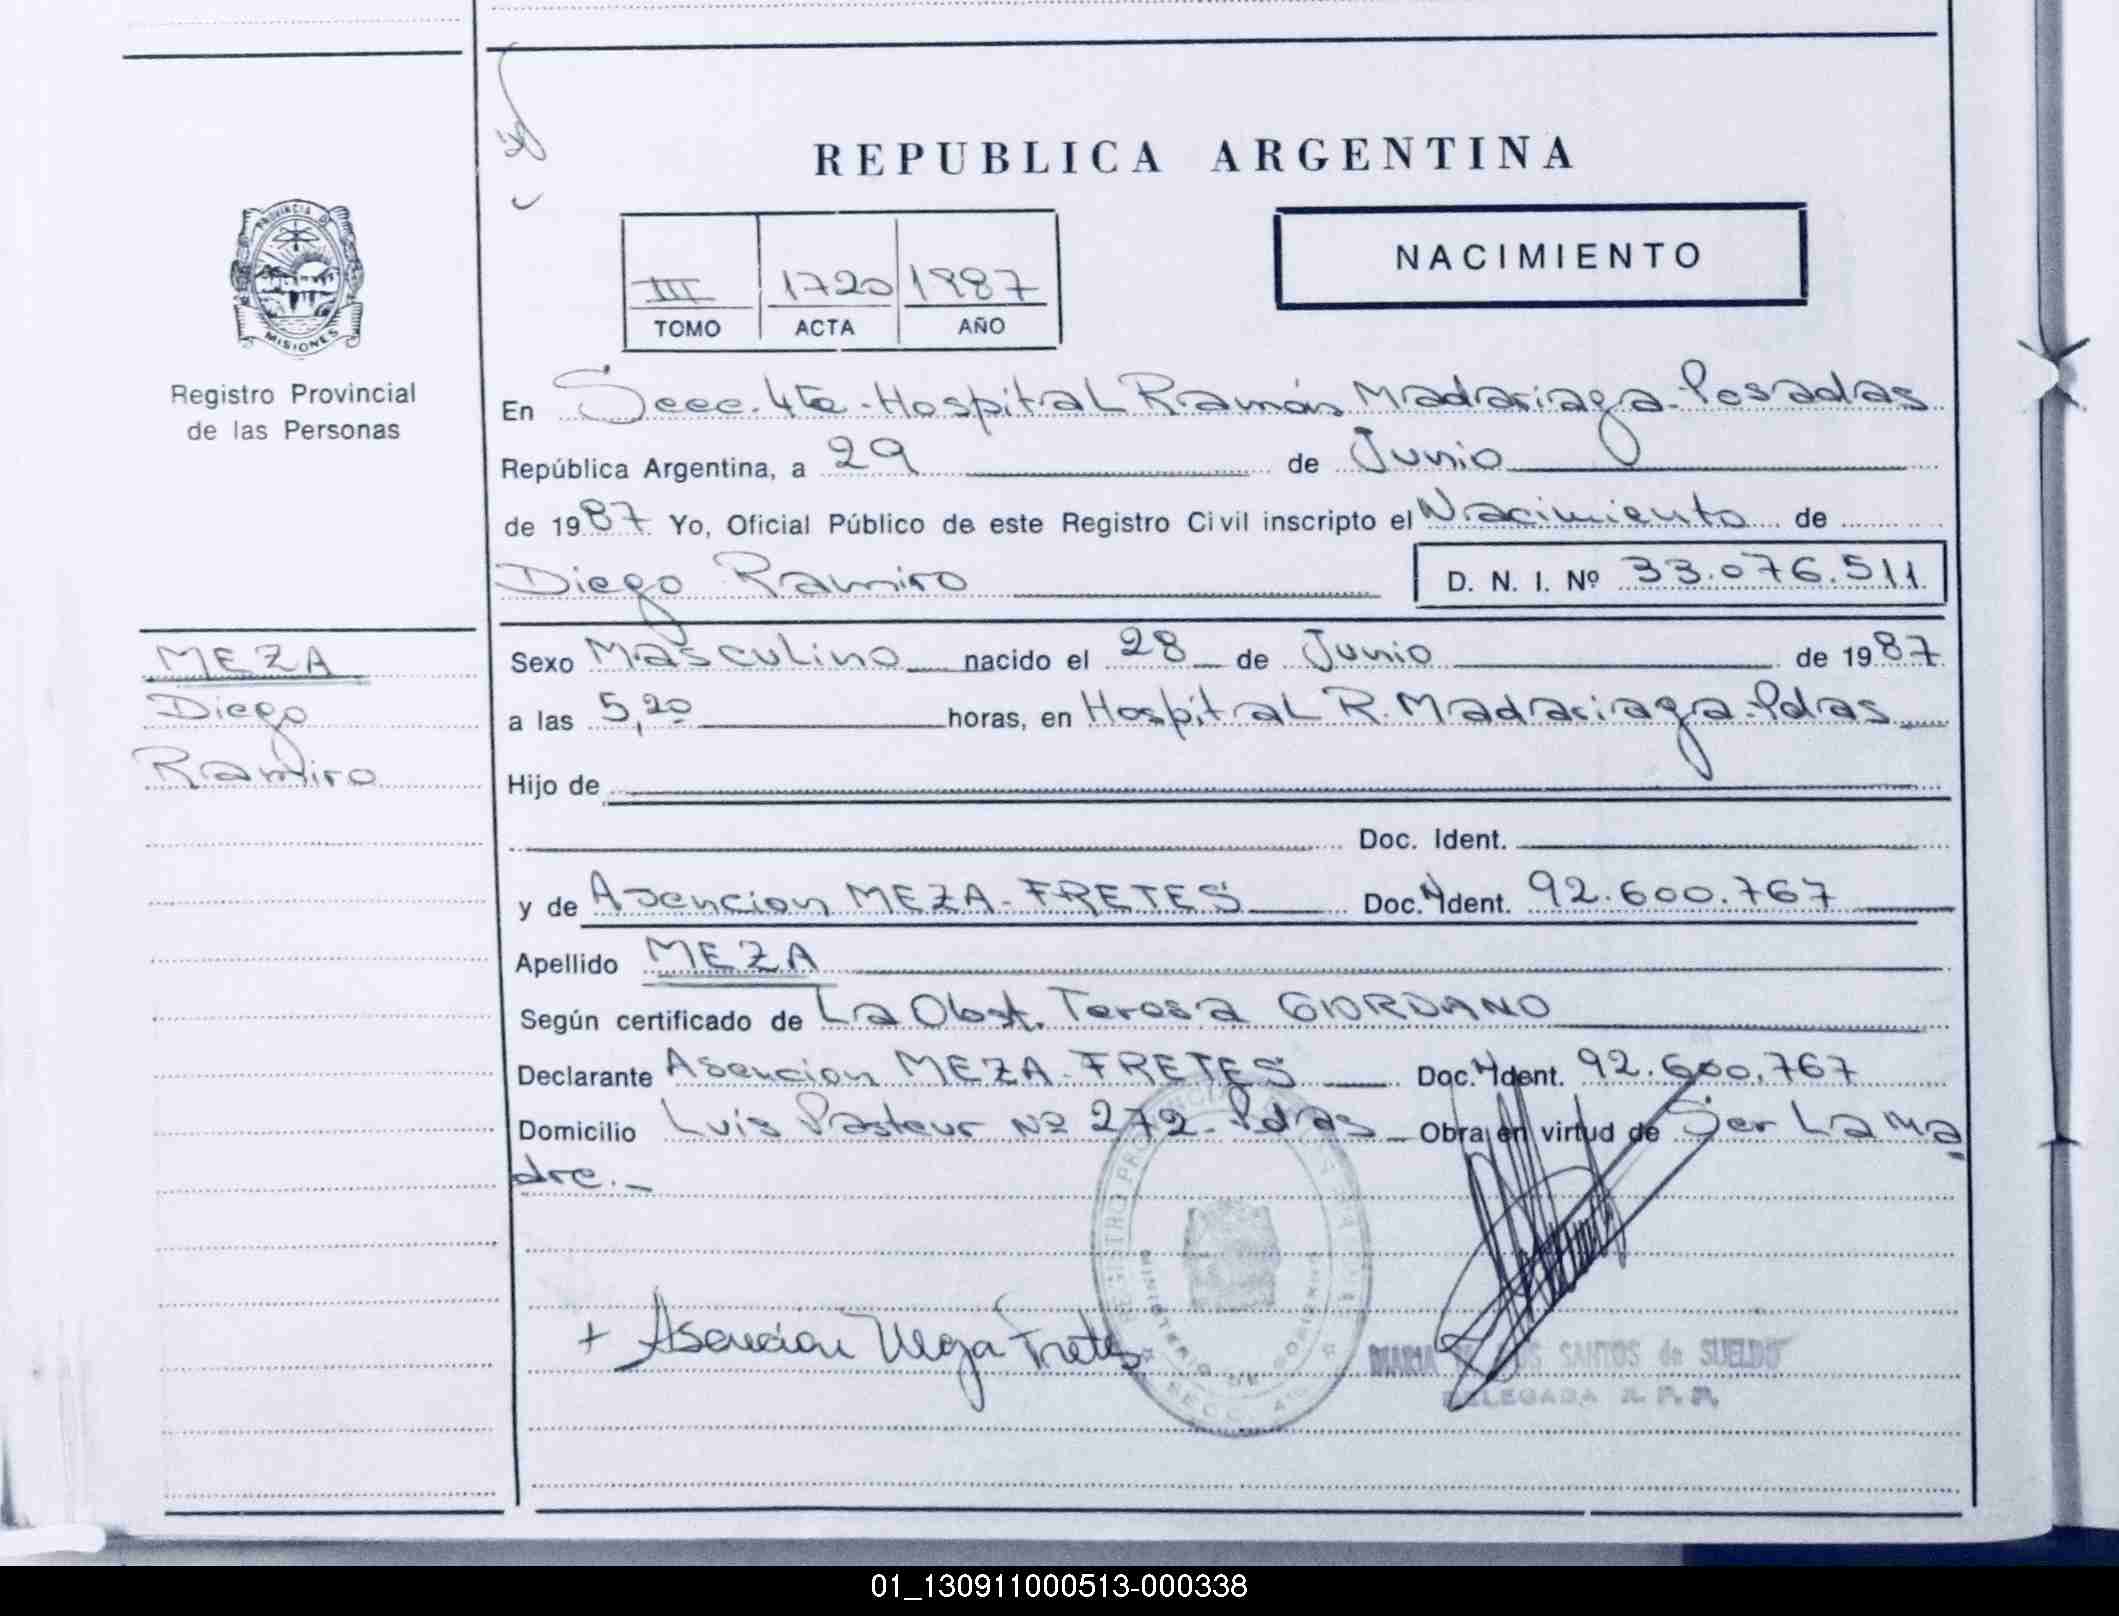 REPUBLICA ARGENTINA
NACIMIENTO
III 1720 1987
TOMO ACTA AÑO
PROVINCIA DE
MISIONES
Registro Provincial
de las Personas
En Secc. 4ta - Hospital Ramón Madariaga - Posadas
República Argentina, a 29 de Junio
de 1987 Yo, Oficial Público de este Registro Civil inscripto el Nacimiento de
Diego Ramiro D. N. I. Nº 33.076.511
MEZA
Diego
Ramiro
Sexo Masculino nacido el 28 de Junio de 1987
a las 5,20 horas, en Hospital R. Madariaga - Pdas
Hijo de
Doc. Ident.
y de Asencion MEZA - FRETES Doc. Ident. 92.600.767
Apellido MEZA
Según certificado de La Obst. Teresa GIORDANO
Declarante Asencion MEZA - FRETES Doc. Ident. 92.600.767
Domicilio Luis Pasteur Nº 272 - Pdas Obra en virtud de Ser La Ma
dre. -
+ Asención Meza Fretes
REGISTRO PROVINCIAL DE LAS
MINISTERIO DE GOBIERNO
SECC. 4
MARIA SANTOS de SUELDO
DELEGADA R. P. P.
01_130911000513-000338